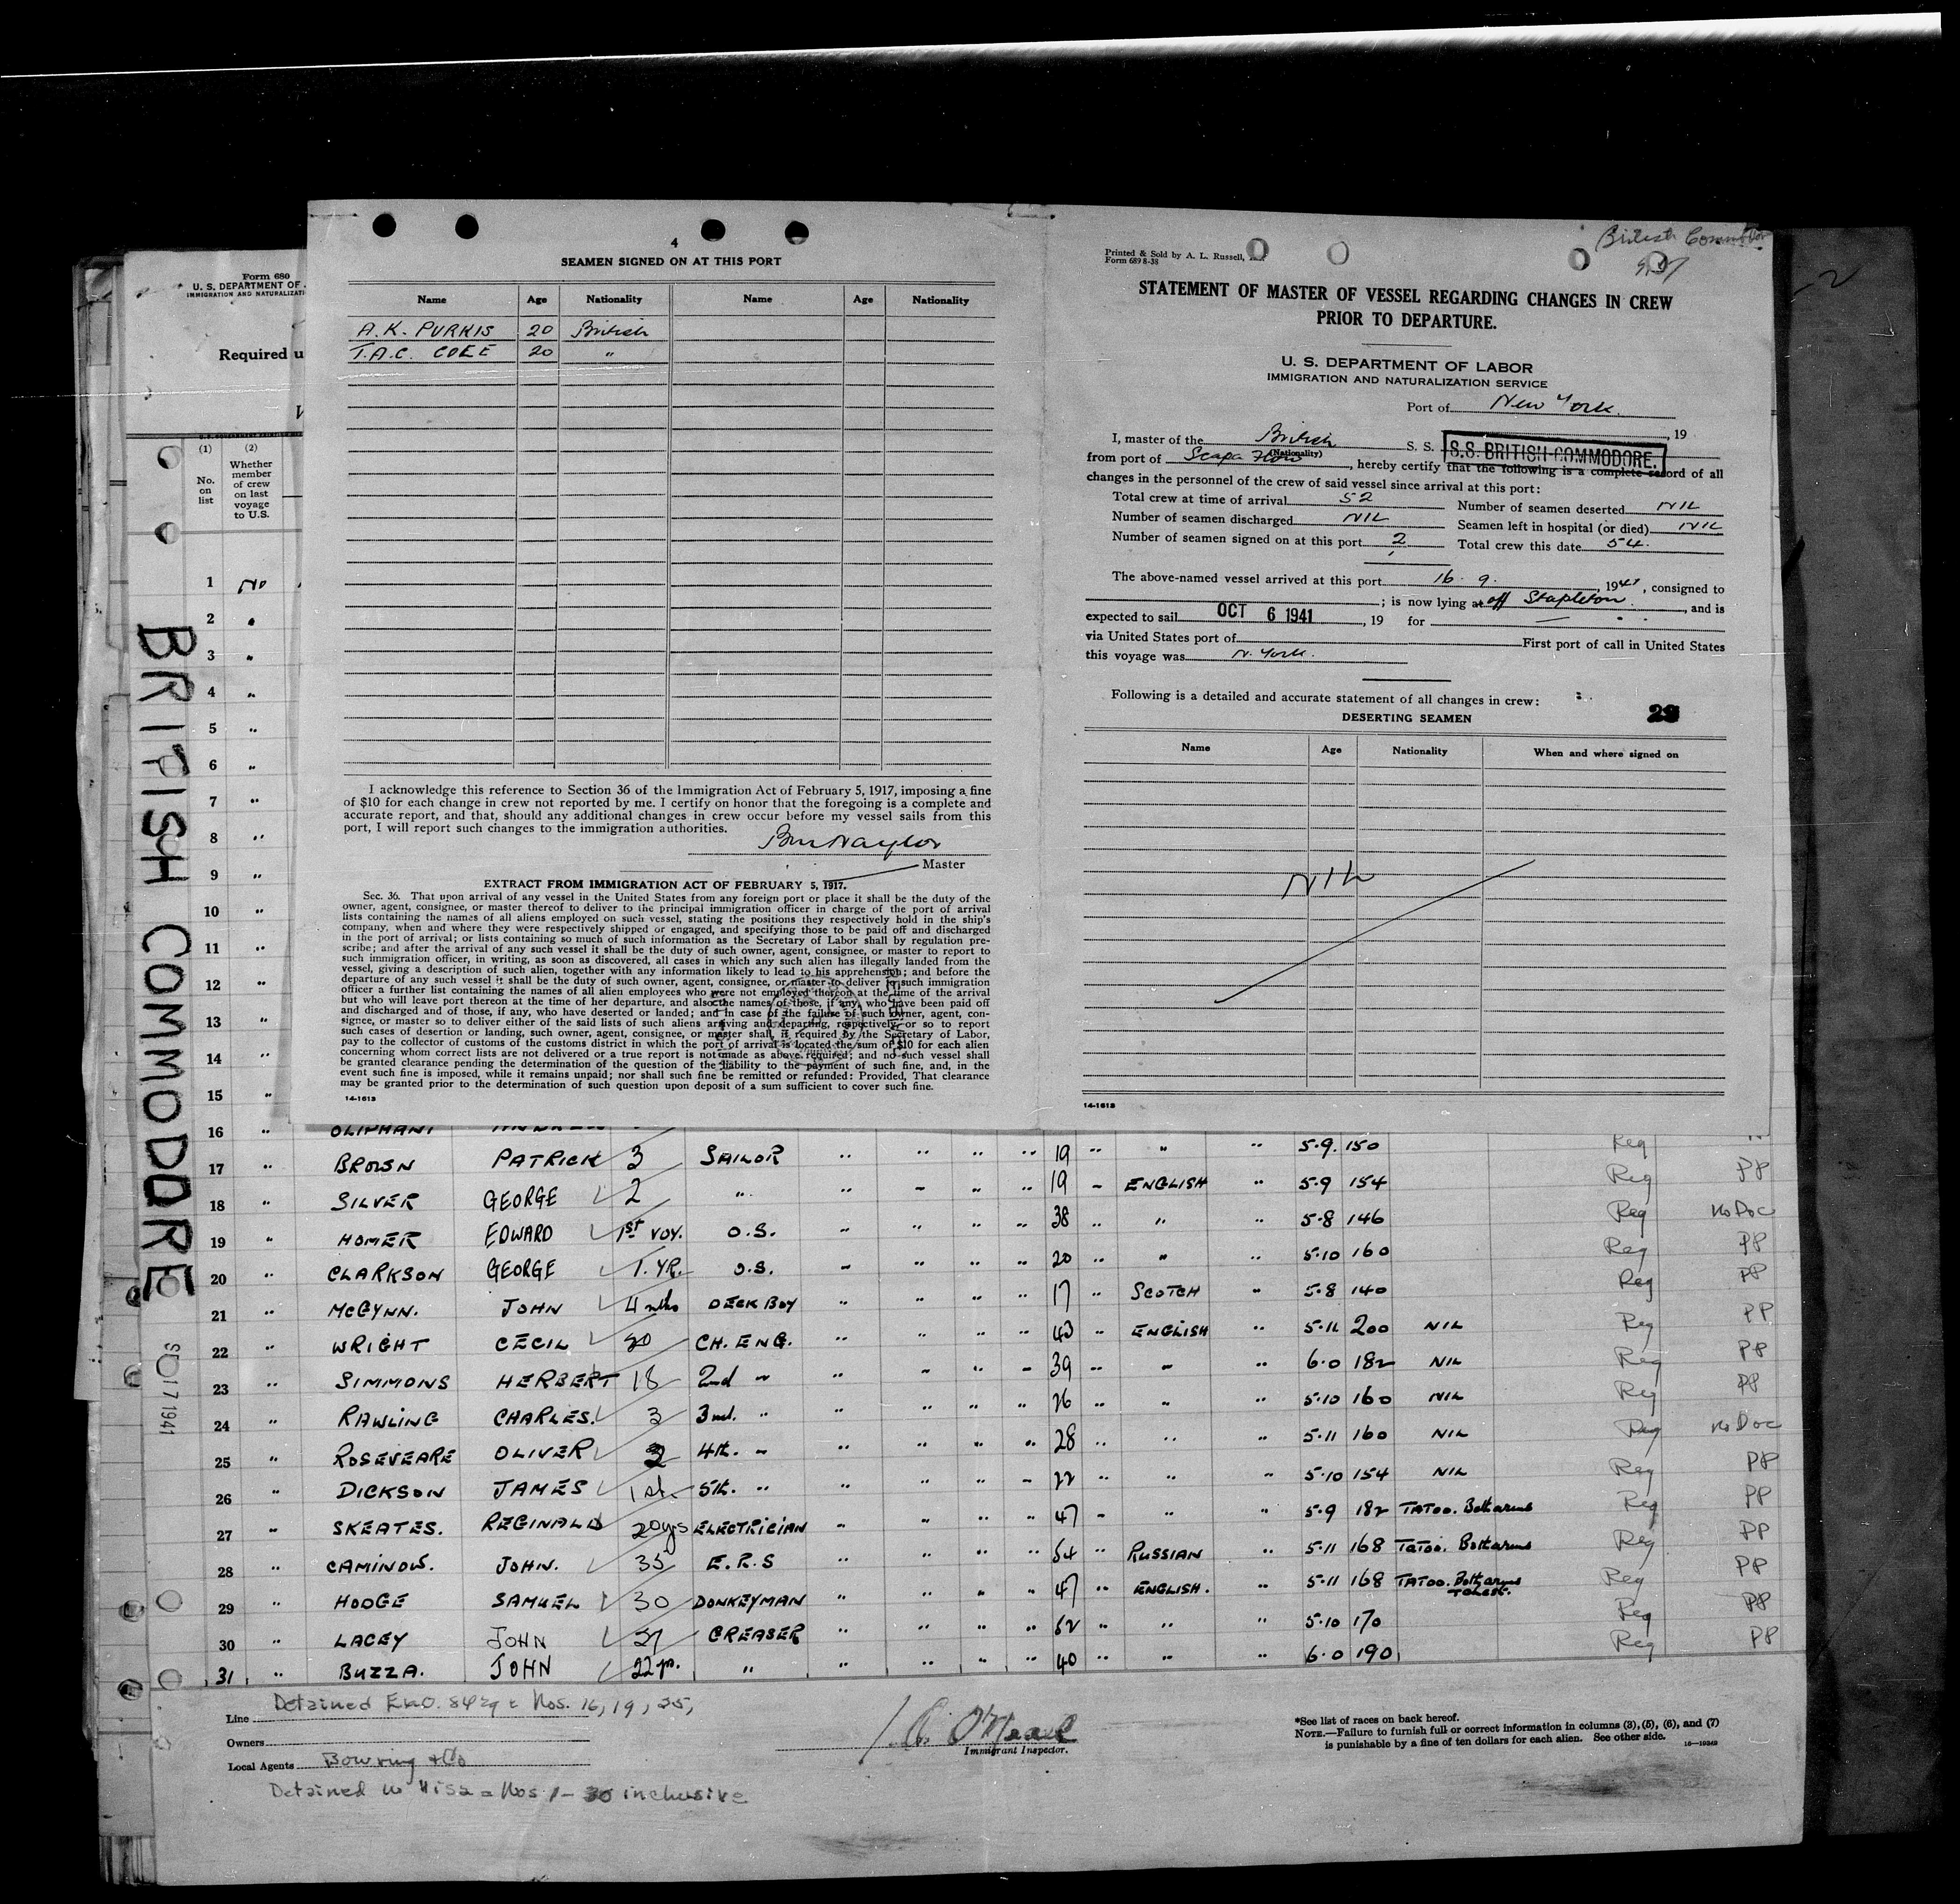 British Commodore
9/17
Form 680
U. S. DEPARTMENT OF
IMMIGRATION AND NATURALIZATI
Required u
(1) (2)
No. on list
Whether member of crew on last voyage to U.S.
1 No
2 "
3 "
4 "
5 "
6 "
7 "
8 "
9 "
10 "
11 "
12 "
13 "
14 "
15 "
BRITISH COMMODORE
SEP 17 1941
4
SEAMEN SIGNED ON AT THIS PORT
Name Age Nationality Name Age Nationality
A.K. PURKIS 20 British
T.A.C. COLE 20 "
I acknowledge this reference to Section 36 of the Immigration Act of February 5, 1917, imposing a fine
of $10 for each change in crew not reported by me. I certify on honor that the foregoing is a complete and
accurate report, and that, should any additional changes in crew occur before my vessel sails from this
port, I will report such changes to the immigration authorities.
Naylor
Master
EXTRACT FROM IMMIGRATION ACT OF FEBRUARY 5, 1917.
Sec. 36. That upon arrival of any vessel in the United States from any foreign port or place it shall be the duty of the
owner, agent, consignee, or master thereof to deliver to the principal immigration officer in charge of the port of arrival
lists containing the names of all aliens employed on such vessel, stating the positions they respectively hold in the ship's
company, when and where they were respectively shipped or engaged, and specifying those to be paid off and discharged
in the port of arrival; or lists containing so much of such information as the Secretary of Labor shall by regulation pre-
scribe; and after the arrival of any such vessel it shall be the duty of such owner, agent, consignee, or master to report to
such immigration officer, in writing, as soon as discovered, all cases in which any such alien has illegally landed from the
vessel, giving a description of such alien, together with any information likely to lead to his apprehension; and before the
departure of any such vessel it shall be the duty of such owner, agent, consignee, or master to deliver to such immigration
officer a further list containing the names of all alien employees who were not employed thereon at the time of the arrival
but who will leave port thereon at the time of her departure, and also the names of those, if any, who have been paid off
and discharged and of those, if any, who have deserted or landed; and in case of the failure of such owner, agent, con-
signee, or master so to deliver either of the said lists of such aliens arriving and departing, respectively, or so to report
such cases of desertion or landing, such owner, agent, consignee, or master shall, if required by the Secretary of Labor,
pay to the collector of customs of the customs district in which the port of arrival is located the sum of $10 for each alien
concerning whom correct lists are not delivered or a true report is not made as above required; and no such vessel shall
be granted clearance pending the determination of the question of the liability to the payment of such fine, and, in the
event such fine is imposed, while it remains unpaid; nor shall such fine be remitted or refunded: Provided, That clearance
may be granted prior to the determination of such question upon deposit of a sum sufficient to cover such fine.
14-1613
Printed & Sold by A. L. Russell,
Form 689 8-38
STATEMENT OF MASTER OF VESSEL REGARDING CHANGES IN CREW
PRIOR TO DEPARTURE.
U. S. DEPARTMENT OF LABOR
IMMIGRATION AND NATURALIZATION SERVICE
Port of New York.
, 19
I, master of the British S. S. S.S. BRITISH COMMODORE.
(Nationality)
from port of Scapa Flow, hereby certify that the following is a complete record of all
changes in the personnel of the crew of said vessel since arrival at this port:
Total crew at time of arrival 52 Number of seamen deserted NIL
Number of seamen discharged NIL Seamen left in hospital (or died) NIL
Number of seamen signed on at this port 2 Total crew this date 54.
The above-named vessel arrived at this port 16. 9. , 1941, consigned to
; is now lying at off Stapleton, and is
expected to sail OCT 6 1941, 19 for —
via United States port of First port of call in United States
this voyage was N. York.
Following is a detailed and accurate statement of all changes in crew:
DESERTING SEAMEN 29
Name Age Nationality When and where signed on
NIL
14-1613
16 " OLIPHANT ANDREW
17 " BROWN PATRICK 3 SAILOR " " " " 19 " " " 5·9. 150 Reg
18 " SILVER GEORGE 2 " " " " " 19 " ENGLISH " 5·9 154 Reg PP
19 " HOMER EDWARD 1ST VOY. O.S. " " " " 38 " " " 5·8 146 Reg No Doc
20 " CLARKSON GEORGE 1. YR. O.S. " " " " 20 " " " 5·10 160 Reg PP
21 " McGYNN. JOHN 4 mths DECK BOY " " " " 17 " SCOTCH " 5·8 140 Reg PP
22 " WRIGHT CECIL 20 CH. ENG. " " " " 43 " ENGLISH " 5·11 200 NIL Reg PP
23 " SIMMONS HERBERT 18 2nd " " " " " 39 " " " 6·0 182 NIL Reg PP
24 " RAWLING CHARLES. 3 3rd. " " " " " 26 " " " 5·10 160 NIL Reg PP
25 " ROSEVEARE OLIVER 2 4th. " " " " " 28 " " " 5·11 160 NIL Reg No Doc
26 " DICKSON JAMES 1st. 5th. " " " " " 22 " " " 5·10 154 NIL Reg PP
27 " SKEATES. REGINALD 20yrs ELECTRICIAN " " " " 47 " " " 5·9 182 TATOO. Both arms Reg PP
28 " CAMINOW. JOHN. 35 E.R.S " " " " 54 " RUSSIAN " 5·11 168 TATOO. Both arms Reg PP
29 " HODGE SAMUEL 30 DONKEYMAN " " " " 47 " ENGLISH. " 5·11 168 TATOO. Both arms Reg PP
30 " LACEY JOHN 37 GREASER " " " " 62 " " " 5·10 170 Reg PP
31 " BUZZA. JOHN 22 yrs. " " " " " 40 " " " 6·0 190 Reg PP
Detained Nos. 16, 19, 25,
Line
Owners
Local Agents Bowring & Co
Detained no Visa = Nos 1 - 30 inclusive
Immigrant Inspector.
*See list of races on back hereof.
NOTE.—Failure to furnish full or correct information in columns (3), (5), (6), and (7)
is punishable by a fine of ten dollars for each alien. See other side.